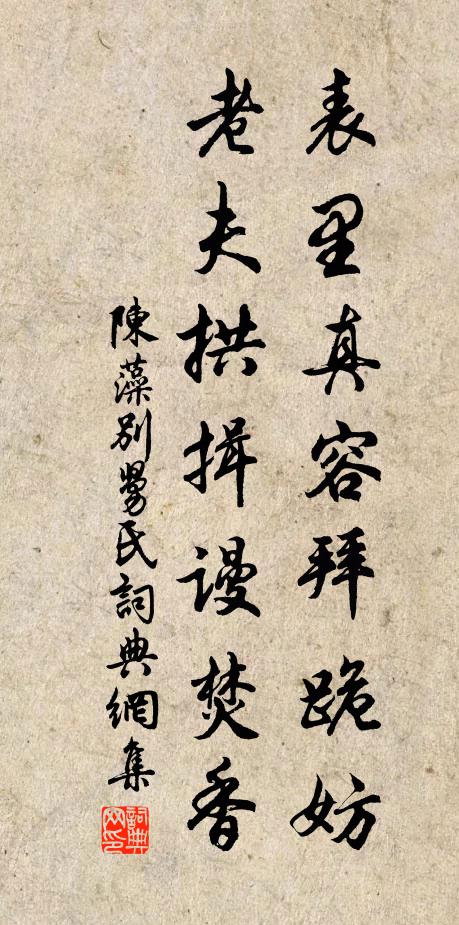 表里真容拜跪妨
老夫拱揖谩焚香
陳藻别舅氏詞典網集
詞典网印